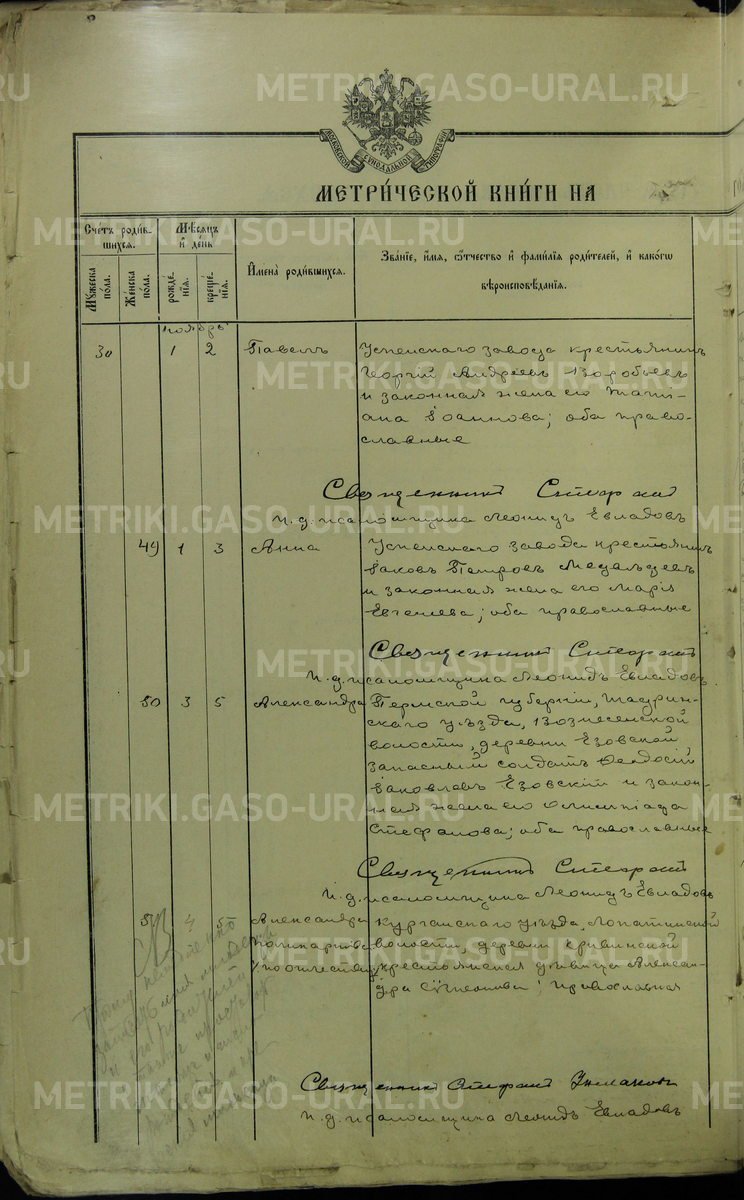 МОСКОВСКОЙ СѴНОДАЛЬНОЙ ТИПОГРАФІИ
МЕТРИ́ЧЕСКОЙ КНИ́ГИ НА
Сче́тъ роди́в-
шихся.
Му́жеска
по́ла.
Же́нска
по́ла.
Мѣ́сяцъ
и҆ де́нь
рожде́-
нїѧ.
креще́-
нїѧ.
И҆мена̀ роди́вшихся.
Зва́нїе, и҆́мя, ѻ҆́тчество и҆ фами́лїя роди́телей, и҆ како́гѡ
вѣроисповѣ́данїя.
ноябрь
30 1 2 Павелъ
Успенскаго завода крестьянинъ
Георгій Андреевъ Воробьевъ
и законная жена его Тати-
ана Іоаннова; оба право-
славные
Священникъ Стефанъ
и.д. псаломщика Леонидъ Евладовъ
49 1 3 Анна
Успенскаго завода крестьянинъ
Іаковъ Петровъ
и законная жена его Марія
Евгеніева; оба православные
Священникъ Стефанъ
и.д. псаломщика Леонидъ Евладовъ
50 3 5 Александра
Пермской губерніи,
скаго уѣзда, Вознесенской
волости, деревни Езовской,
запасный солдатъ Ѳеодосій
Іаковлевъ Езовскій и закон-
ная жена его Олимпіада
Стефанова; оба православные
Священникъ Стефанъ
и.д. псаломщика Леонидъ Евладовъ
51 4 5 Александра
по отчеству
Курганскаго уѣзда, Лопатинской
волости, деревни
крестьянская дѣвица Алексан-
дра; православная
Священникъ Стефанъ
и.д. псаломщика Леонидъ Евладовъ
METRIKI.GASO-URAL.RU